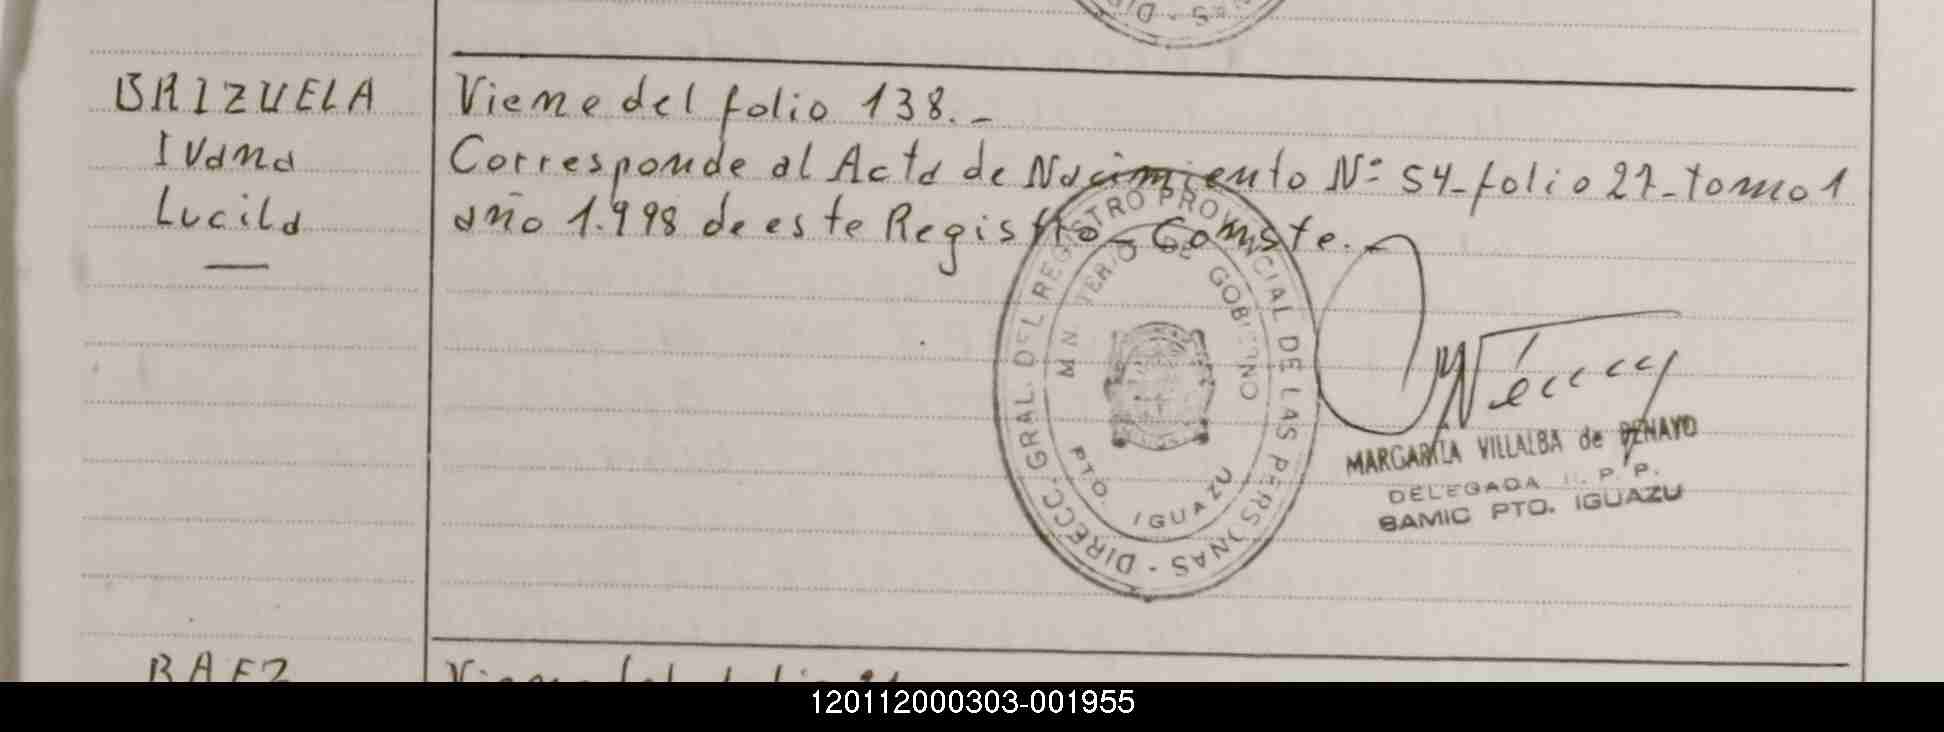 BRIZUELA
Ivana
Lucila
Viene del folio 138.-
Corresponde al Acta de Nacimiento Nº 54-folio 27-tomo 1
año 1.998 de este Registro - Conste.-
DIRECC. GRAL. DEL REGISTRO PROVINCIAL DE LAS PERSONAS -
MINISTERIO DE GOBIERNO
PTO. IGUAZU
MARGARITA VILLALBA de BENAYO
DELEGADA R. P. P.
SAMIC PTO. IGUAZU
BAEZ
Viene del folio
120112000303-001955